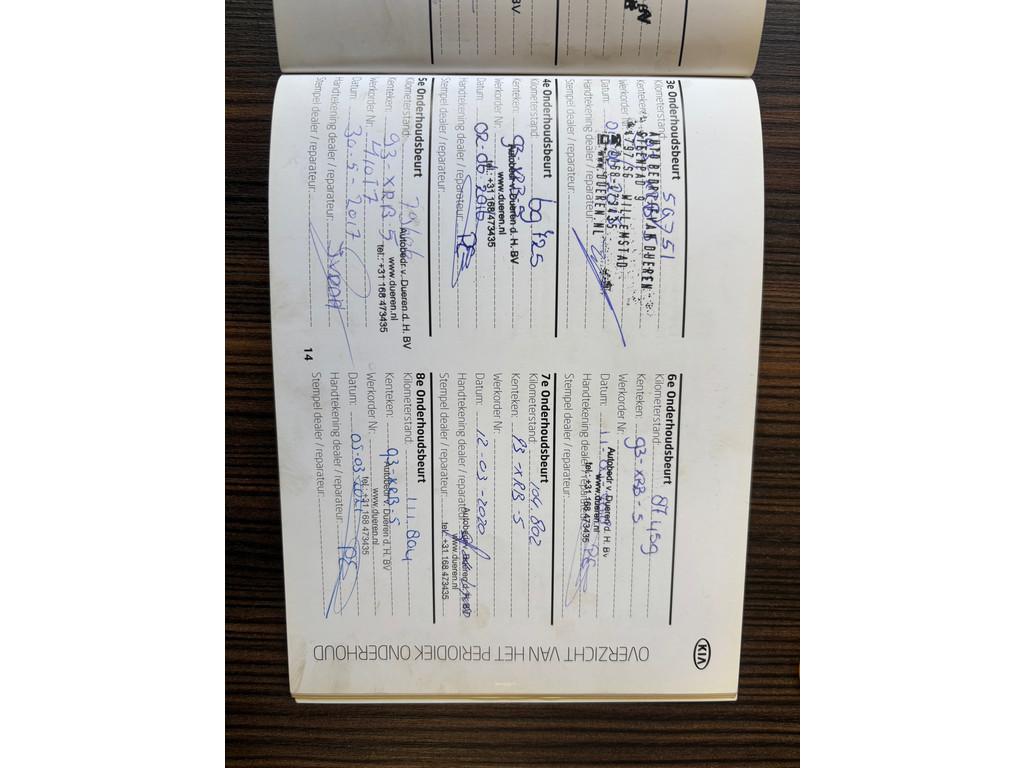 OVERZICHT VAN HET PERIODIEK ONDERHOUD
KIA
3e Onderhoudsbeurt
Kilometerstand: 56751
Kenteken:
Werkorder Nr.:
Datum:
Handtekening dealer / reparateur:
Stempel dealer / reparateur:
AUTOBEDRIJF VAN DUEREN
STEENPAD 9
4797 SG WILLEMSTAD
☎ 0168-473435
www.DUEREN.NL
4e Onderhoudsbeurt
Kilometerstand: 69425
Kenteken: 93-XRB-5
Werkorder Nr.:
Datum: 02-06-2016
Handtekening dealer / reparateur:
Stempel dealer / reparateur:
Autobedr v. Dueren d. H. BV
www.dueren.nl
tel.: +31 168 473435
5e Onderhoudsbeurt
Kilometerstand:
Kenteken: 93-XRB-5
Werkorder Nr.:
Datum: 30-5-2017
Handtekening dealer / reparateur:
Stempel dealer / reparateur:
Autobedr v. Dueren d. H. BV
www.dueren.nl
tel.: +31 168 473435
14
6e Onderhoudsbeurt
Kilometerstand:
Kenteken: 93-XRB-5
Werkorder Nr.:
Datum:
Handtekening dealer / reparateur:
Stempel dealer / reparateur:
Autobedr v. Dueren d. H. BV
www.dueren.nl
tel.: +31 168 473435
7e Onderhoudsbeurt
Kilometerstand: 104.802
Kenteken: 93-XRB-5
Werkorder Nr.:
Datum: 12-03-2020
Handtekening dealer / reparateur:
Stempel dealer / reparateur:
Autobedr v. Dueren d. H. BV
www.dueren.nl
tel.: +31 168 473435
8e Onderhoudsbeurt
Kilometerstand: 111.804
Kenteken: 93-XRB-5
Werkorder Nr.:
Datum: 05-03-2021
Handtekening dealer / reparateur:
Stempel dealer / reparateur:
Autobedr v. Dueren d. H. BV
www.dueren.nl
tel.: +31 168 473435